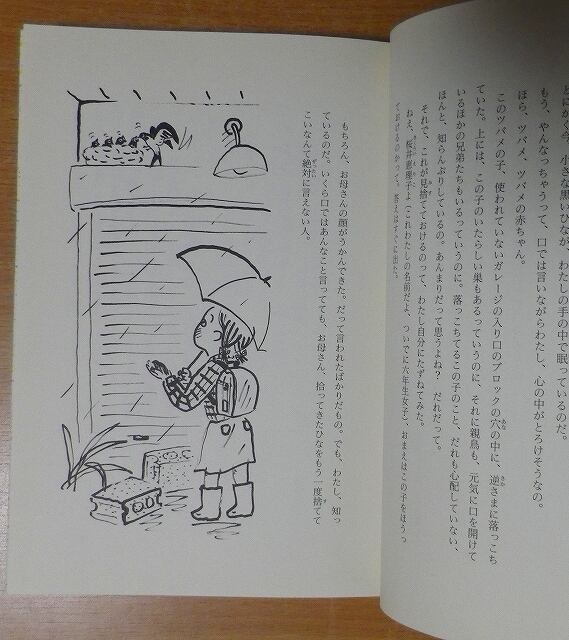 とにかく今、小さな黒いひなが、わたしの手の中で眠っているのだ。
もう、やんなっちゃうって、口では言いながらわたし、心の中がとろけそうなの。
ほら、ツバメ、ツバメの赤ちゃん。
このツバメの子、使われていないガレージの入り口のブロックの穴の中に、逆さまに落っこち
ていた。上には、この子のいたらしい巣もあるっていうのに、それに親鳥も、元気に口を開けて
いるほかの兄弟たちもいるっていうのに。落っこちてるこの子のこと、だれも心配していない、
ほんと、知らんぷりしているの。あんまりだって思うよね？　だれだって。
それで、これが見捨てておけるのって、わたし自分にたずねてみた。
ねえ、桜井恵理子よ（これわたしの名前だよ、ついでに六年生女子）おまえはこの子をほうっ
ておけるのかって。答えはすぐに出た。
もちろん、お母さんの顔がうかんできた。だって言われたばかりだもの。でも、わたし、知っ
ているのだ。いくら口ではあんなこと言ってても、お母さん、拾ってきたひなをもう一度捨てて
こいなんて絶対に言えない人。